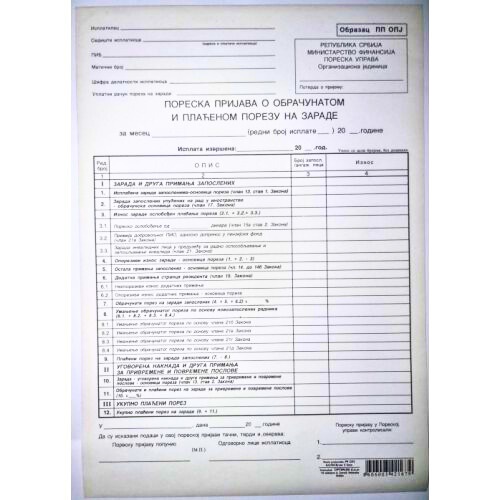 Исплатилац
Образац ПП ОПЈ
Седиште исплатиоца
(адреса и општина исплатиоца)
ПИБ
Матични број
Шифра делатности исплатиоца
Уплатни рачун пореза на зараде
РЕПУБЛИКА СРБИЈА
МИНИСТАРСТВО ФИНАНСИЈА
ПОРЕСКА УПРАВА
Организациона јединица
Потврда о пријему:
ПОРЕСКА ПРИЈАВА О ОБРАЧУНАТОМ
И ПЛАЋЕНОМ ПОРЕЗУ НА ЗАРАДЕ
за месец (редни број исплате ) 20 године
Исплата извршена: 20 год.
Износ се даје бројем, без децимала
Ред. број
ОПИС
Број запосл. (ангаж. лица
Износ
1 2 3 4
I ЗАРАДА И ДРУГА ПРИМАЊА ЗАПОСЛЕНИХ
1. Исплаћена зарада запосленима-основица пореза (члан 13. став 1. Закона)
2. Зарада запослених упућених на рад у иностранство - обрачунска основица пореза (члан 17. Закона)
3. Износ зараде ослобођен плаћања пореза (3.1. + 3.2.+ 3.3.)
3.1. Пореско ослобођење од динара (члан 15а став 2. Закона)
3.2. Премија добровољног ПИО, односно допринос у пензијски фонд (члан 21а Закона)
3.3. Зарада инвалидних лица у предузећу за радно оспособљавање и запошљавање инвалида (члан 21. Закона)
4. Опорезиви износ зараде - основица пореза (1. + 2. - 3)
5. Остала примања запослених - основица пореза (чл. 14. до 14б Закона)
6. Додатна примања страпца резидента (члан 18. Закона)
6.1. Неопорезиви износ додатних примања
6.2. Опорезиви износ додатних примања - основица пореза
7. Обрачунати порез на зараде запослених (4. + 5. + 6.2) x %
8. Умањење обрачунатог пореза по основу новозапослених радника (8.1. + 8.2. + 8.3. + 8.4.)
8.1. Умањење обрачунатог пореза по основу члана 21б Закона
8.2. Умањење обрачунатог пореза по основу члана 21в Закона
8.3. Умањење обрачунатог пореза по основу члана 21г Закона
8.4. Умањење обрачунатог пореза по основу члана 21д Закона
9. Плаћени порез на зараде запослених (7. - 8.)
II УГОВОРЕНА НАКНАДА И ДРУГА ПРИМАЊА
ЗА ПРИВРЕМЕНЕ И ПОВРЕМЕНЕ ПОСЛОВЕ
10. Зарада - уговорена накнада и друга примања за привремене и повремене послове - основица пореза (члан 13. став 2. Закона)
11. Обрачунати и плаћени порез на зараде за привремене и повремене послове (10. x %)
III УКУПНО ПЛАЋЕНИ ПОРЕЗ
12. Укупно плаћени порез на зараде (9. + 11.)
У , дана 20 године
Да су исказани подаци у овој пореској пријави тачни, тврди и оверава:
Пореску пријаву попунио: Одговорно лице исплатиоца
(М.П.)
Пореску пријаву у Пореској управи контролисали:
1.
2.